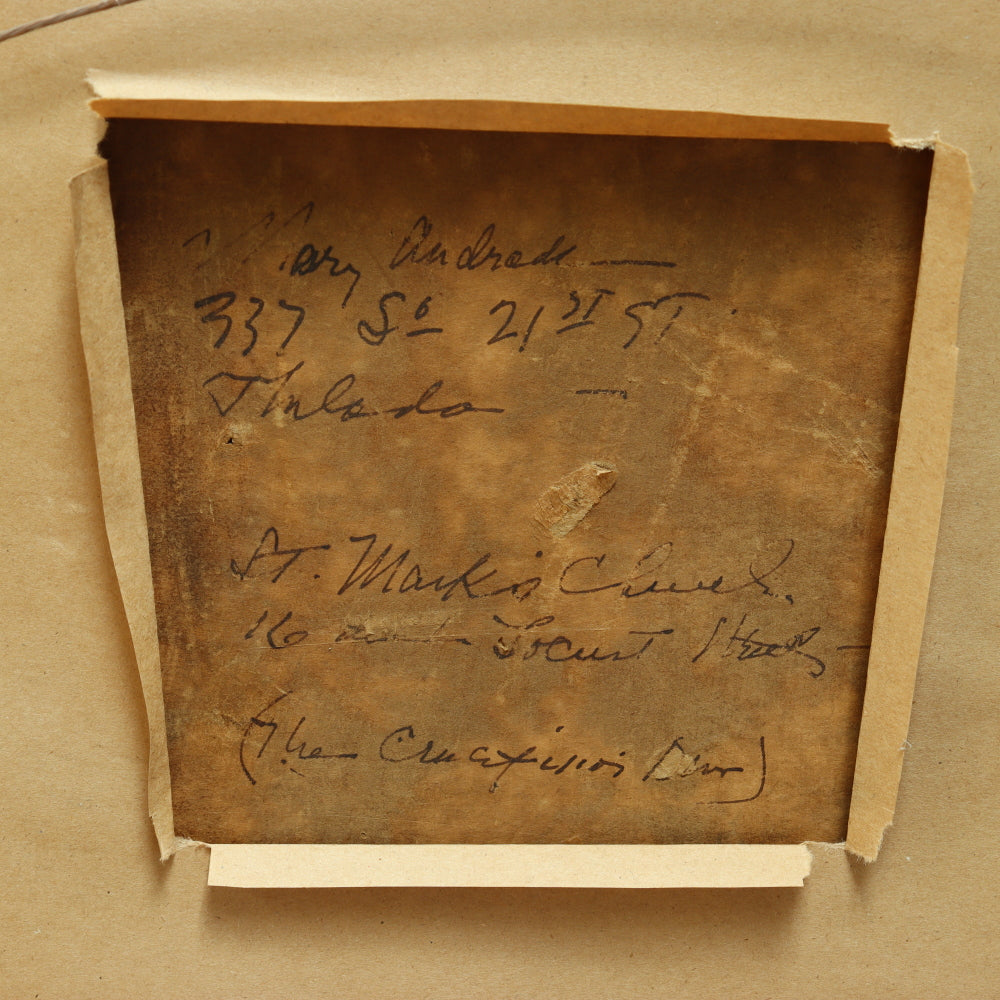 Mary Andrade —
337 So 21ST ST.
Philada —
St. Mark's Church.
16 and Locust Streets —
(The Crucifixion Door)